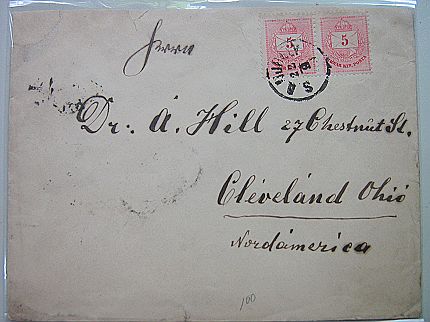 Herrn
5 5
MAGYAR KIR. POSTA
Dr: A. Hill 27 Chestnut St.
Cleveland Ohio
Nordamerica
100